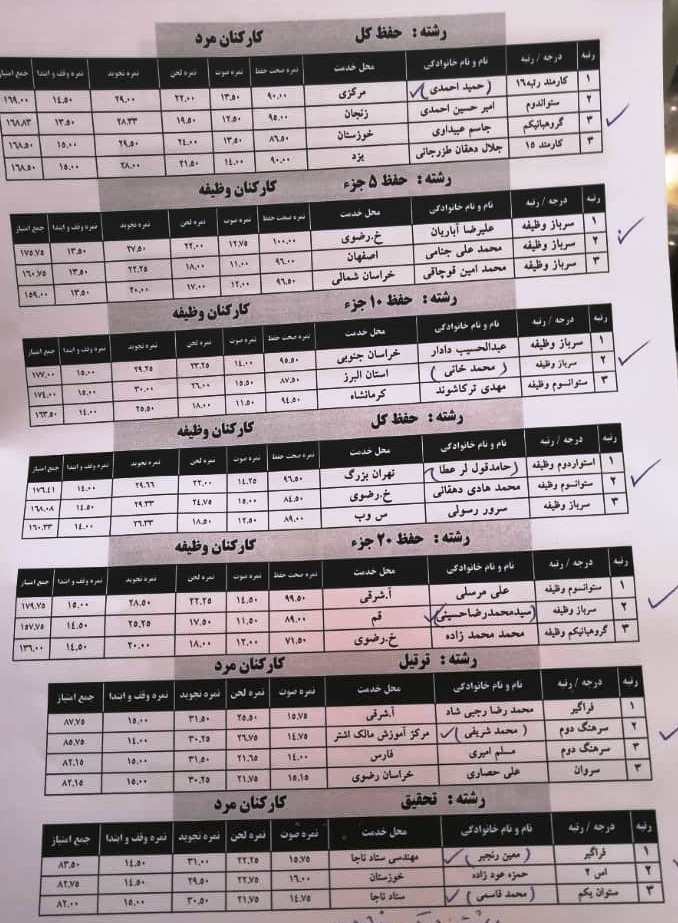 رشته : حفظ کل کارکنان مرد
رتبه درجه / رتبه نام و نام خانوادگی محل خدمت نمره صحت حفظ نمره صوت نمره لحن نمره تجوید نمره وقف و ابتدا جمع امتیاز
۱ کارمند رتبه۱۶ (حمید احمدی) مرکزی ۹۰.۰۰ ۱۳.۵۰ ۲۲.۰۰ ۲۹.۰۰ ۱۴.۵۰ ۱۶۹.۰۰
۲ ستواندوم امیر حسین احمدی زنجان ۹۵.۰۰ ۱۲.۵۰ ۱۹.۵۰ ۲۸.۳۳ ۱۳.۵۰ ۱۶۸.۸۳
۳ گروهبانیکم جاسم عبیداوی خوزستان ۸۶.۵۰ ۱۳.۵۰ ۲۴.۰۰ ۲۹.۵۰ ۱۵.۰۰ ۱۶۸.۵۰
۳ کارمند ۱۵ جلال دهقان طزرجانی یزد ۹۰.۰۰ ۱۴.۰۰ ۲۱.۵۰ ۲۸.۰۰ ۱۵.۰۰ ۱۶۸.۵۰
رشته : حفظ ۵ جزء کارکنان وظیفه
رتبه درجه / رتبه نام و نام خانوادگی محل خدمت نمره صحت حفظ نمره صوت نمره لحن نمره تجوید نمره وقف و ابتدا جمع امتیاز
۱ سرباز وظیفه علیرضا آباریان خ.رضوی ۱۰۰.۰۰ ۱۲.۷۵ ۲۲.۰۰ ۲۷.۵۰ ۱۳.۵۰ ۱۷۵.۷۵
۲ سرباز وظیفه محمد علی جثامی اصفهان ۹۶.۰۰ ۱۱.۰۰ ۱۸.۰۰ ۲۲.۲۵ ۱۳.۵۰ ۱۶۰.۷۵
۳ سرباز وظیفه محمد امین قوچاقی خراسان شمالی ۹۶.۵۰ ۱۲.۰۰ ۱۷.۰۰ ۲۰.۰۰ ۱۳.۵۰ ۱۵۹.۰۰
رشته : حفظ ۱۰ جزء کارکنان وظیفه
رتبه درجه / رتبه نام و نام خانوادگی محل خدمت نمره صحت حفظ نمره صوت نمره لحن نمره تجوید نمره وقف و ابتدا جمع امتیاز
۱ سرباز وظیفه عبدالحسیب دادار خراسان جنوبی ۹۵.۵۰ ۱۴.۰۰ ۲۳.۲۵ ۲۹.۲۵ ۱۵.۰۰ ۱۷۷.۰۰
۲ سرباز وظیفه (محمد خانی) استان البرز ۸۷.۵۰ ۱۵.۵۰ ۲۶.۰۰ ۳۰.۰۰ ۱۵.۰۰ ۱۷۴.۰۰
۳ ستوانسوم وظیفه مهدی ترکاشوند کرمانشاه ۹۴.۵۰ ۱۱.۵۰ ۱۸.۰۰ ۲۵.۵۰ ۱۴.۰۰ ۱۶۳.۵۰
رشته : حفظ کل کارکنان وظیفه
رتبه درجه / رتبه نام و نام خانوادگی محل خدمت نمره صحت حفظ نمره صوت نمره لحن نمره تجوید نمره وقف و ابتدا جمع امتیاز
۱ استواردوم وظیفه (حامدقول لر عطا) تهران بزرگ ۹۶.۵۰ ۱۴.۲۵ ۲۲.۰۰ ۲۹.۶۶ ۱۴.۰۰ ۱۷۶.۴۱
۲ ستوانسوم وظیفه محمد هادی دهقانی خ.رضوی ۸۴.۵۰ ۱۵.۰۰ ۲۴.۷۵ ۲۹.۳۳ ۱۴.۵۰ ۱۶۸.۰۸
۳ سرباز وظیفه سرور رسولی س وب ۸۹.۰۰ ۱۲.۵۰ ۱۸.۵۰ ۲۶.۳۳ ۱۴.۰۰ ۱۶۰.۳۳
رشته : حفظ ۲۰ جزء کارکنان وظیفه
رتبه درجه / رتبه نام و نام خانوادگی محل خدمت نمره صحت حفظ نمره صوت نمره لحن نمره تجوید نمره وقف و ابتدا جمع امتیاز
۱ ستوانسوم وظیفه علی مرسلی آ.شرقی ۹۹.۵۰ ۱۴.۵۰ ۲۲.۲۵ ۲۸.۵۰ ۱۵.۰۰ ۱۷۹.۷۵
۲ سرباز وظیفه (سیدمحمدرضاحسینی) قم ۸۹.۰۰ ۱۱.۵۰ ۱۷.۵۰ ۲۵.۲۵ ۱۴.۵۰ ۱۵۷.۷۵
۳ گروهبانیکم وظیفه محمد محمد زاده خ.رضوی ۷۱.۵۰ ۱۲.۰۰ ۱۸.۰۰ ۲۰.۰۰ ۱۴.۵۰ ۱۳۶.۰۰
رشته : ترتیل کارکنان مرد
رتبه درجه / رتبه نام و نام خانوادگی محل خدمت نمره صوت نمره لحن نمره تجوید نمره وقف و ابتدا جمع امتیاز
۱ فراگیر محمد رضا رجبی شاد آ.شرقی ۱۵.۷۵ ۲۵.۵۰ ۳۱.۵۰ ۱۵.۰۰ ۸۷.۷۵
۲ سرهنگ دوم (محمد شریفی) مرکز آموزش مالک اشتر ۱۴.۷۵ ۲۶.۷۵ ۳۰.۲۵ ۱۴.۰۰ ۸۵.۷۵
۳ سرهنگ دوم مسلم امیری فارس ۱۴.۰۰ ۲۱.۶۵ ۳۱.۵۰ ۱۵.۰۰ ۸۲.۱۵
۳ سروان علی حصاری خراسان رضوی ۱۵.۱۵ ۲۱.۷۵ ۳۰.۲۵ ۱۵.۰۰ ۸۲.۱۵
رشته : تحقیق کارکنان مرد
رتبه درجه / رتبه نام و نام خانوادگی محل خدمت نمره صوت نمره لحن نمره تجوید نمره وقف و ابتدا جمع امتیاز
۱ فراگیر (معین رنجبر) مهندسی ستاد ناجا ۱۵.۷۵ ۲۲.۲۵ ۳۱.۰۰ ۱۴.۵۰ ۸۳.۵۰
۲ اس ۲ حمزه عود زاده خوزستان ۱۶.۰۰ ۲۲.۷۵ ۲۹.۵۰ ۱۴.۵۰ ۸۲.۷۵
۳ ستوان یکم (محمد قاسمی) ستاد ناجا ۱۴.۷۵ ۲۱.۷۵ ۳۰.۵۰ ۱۵.۰۰ ۸۲.۰۰